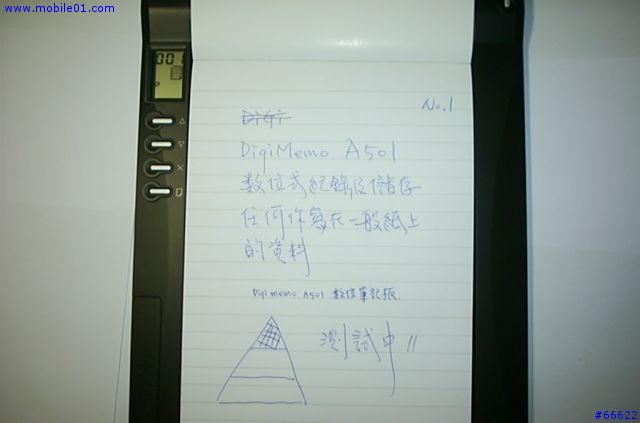 www.mobile01.com
001
No.1
DigiMemo A501
數位式紀錄及儲存
任何你寫在一般紙上
的資料
Digimemo A501 數位筆記板.
測試中!!
#66622